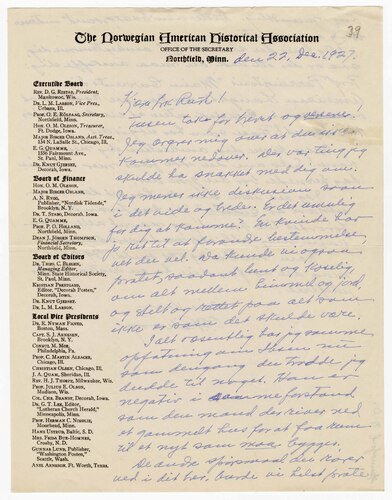 The Norwegian American Historical Association
39
OFFICE OF THE SECRETARY
Northfield, Minn.
den 22, Des. 1927.
Executive Board
REV. D. G. RISTAD, President,
Manitowoc, Wis.
DR. L. M. LARSON, Vice Pres.,
Urbana, Ill.
PROF. O. E. RÖLVAAG, Secretary,
Northfield, Minn.
HON. O. M. OLESON, Treasurer,
Ft. Dodge, Iowa.
MAJOR BIRGER OSLAND, Asst. Treas.,
134 N. LaSalle St., Chicago, Ill.
E. G. QUAMME,
St. Paul, Minn.
Board of Finance
HON. O. M. OLESON.
MAJOR BIRGER OSLAND.
A. N. RYGG,
Publisher, "Nordisk Tidende,"
Brooklyn, N. Y.
DR. T. STABO, Decorah, Iowa.
E. G. QUAMME,
St. Paul, Minn.
PROF. P. O. HOLLAND,
Northfield, Minn.
DEAN J. JÖRGEN THOMPSON,
Financial Secretary,
Northfield, Minn.
Board of Editors
DR. THEO. C. BLEGEN,
Managing Editor,
Minn. State Historical Society,
St. Paul, Minn.
KRISTIAN PRESTGARD,
Editor, "Decorah Posten,"
Decorah, Iowa.
DR. KNUT GJERSET.
DR. L. M. LARSON.
Local Vice Presidents
Boston, Mass.
CAPT. S. J. ARNESEN,
Brooklyn, N. Y.
Philadelphia, Pa.
PROF. C. MARTIN ALSAGER,
Chicago, Ill.
CHRISTIAN OLSEN, Chicago, Ill.
J. A. QUAM, Sheridan, Ill.
REV. H. J. THORPE, Milwaukee, Wis.
PROF. JULIUS E. OLSON,
Madison, Wis.
COL. CHR. BRANDT, Decorah, Iowa.
DR. G. T. LEE, Editor,
"Lutheran Church Herald,"
Minneapolis, Minn.
PROF. HERMAN C. NORDLIE,
Moorhead, Minn.
HANS USTRUD, Baltic, S. D.
Crosby, N. D.
GUNNAR LUND, Publisher,
"Washington Posten,"
Seattle, Wash.
AXEL ARNESON, Ft. Worth, Texas.
Kjære fru Rush!
Tusen takk for brevet og versene!
Jeg ergrer mig over at du ikke
kommer nedover. Der var ting jeg
skulde ha snakket med dig om.
Jeg mener ikke diskusjon saan
i det vide og brede. Er det umulig
for dig at komme? En kvinde har
jo ret til at forandre bestemmelse
vet du vel. Da kunde vi ogsaa
pratet, saadant lunt og koselig
om alt mellem himmel og jord,
og skilt og rettet paa alt som
ikke er som det skulde være.
I alt vesentlig har jeg samme
opfatning om Ibsen nu
som dengang du trodde jeg
duedde til noget. Han er
negativ i samme forstand
som den mand der river ned
et gammelt hus for at faa rum
til et nyt som maa bygges.
De andre spörsmaal du rörer
ved i dit brev burde vi helst prate